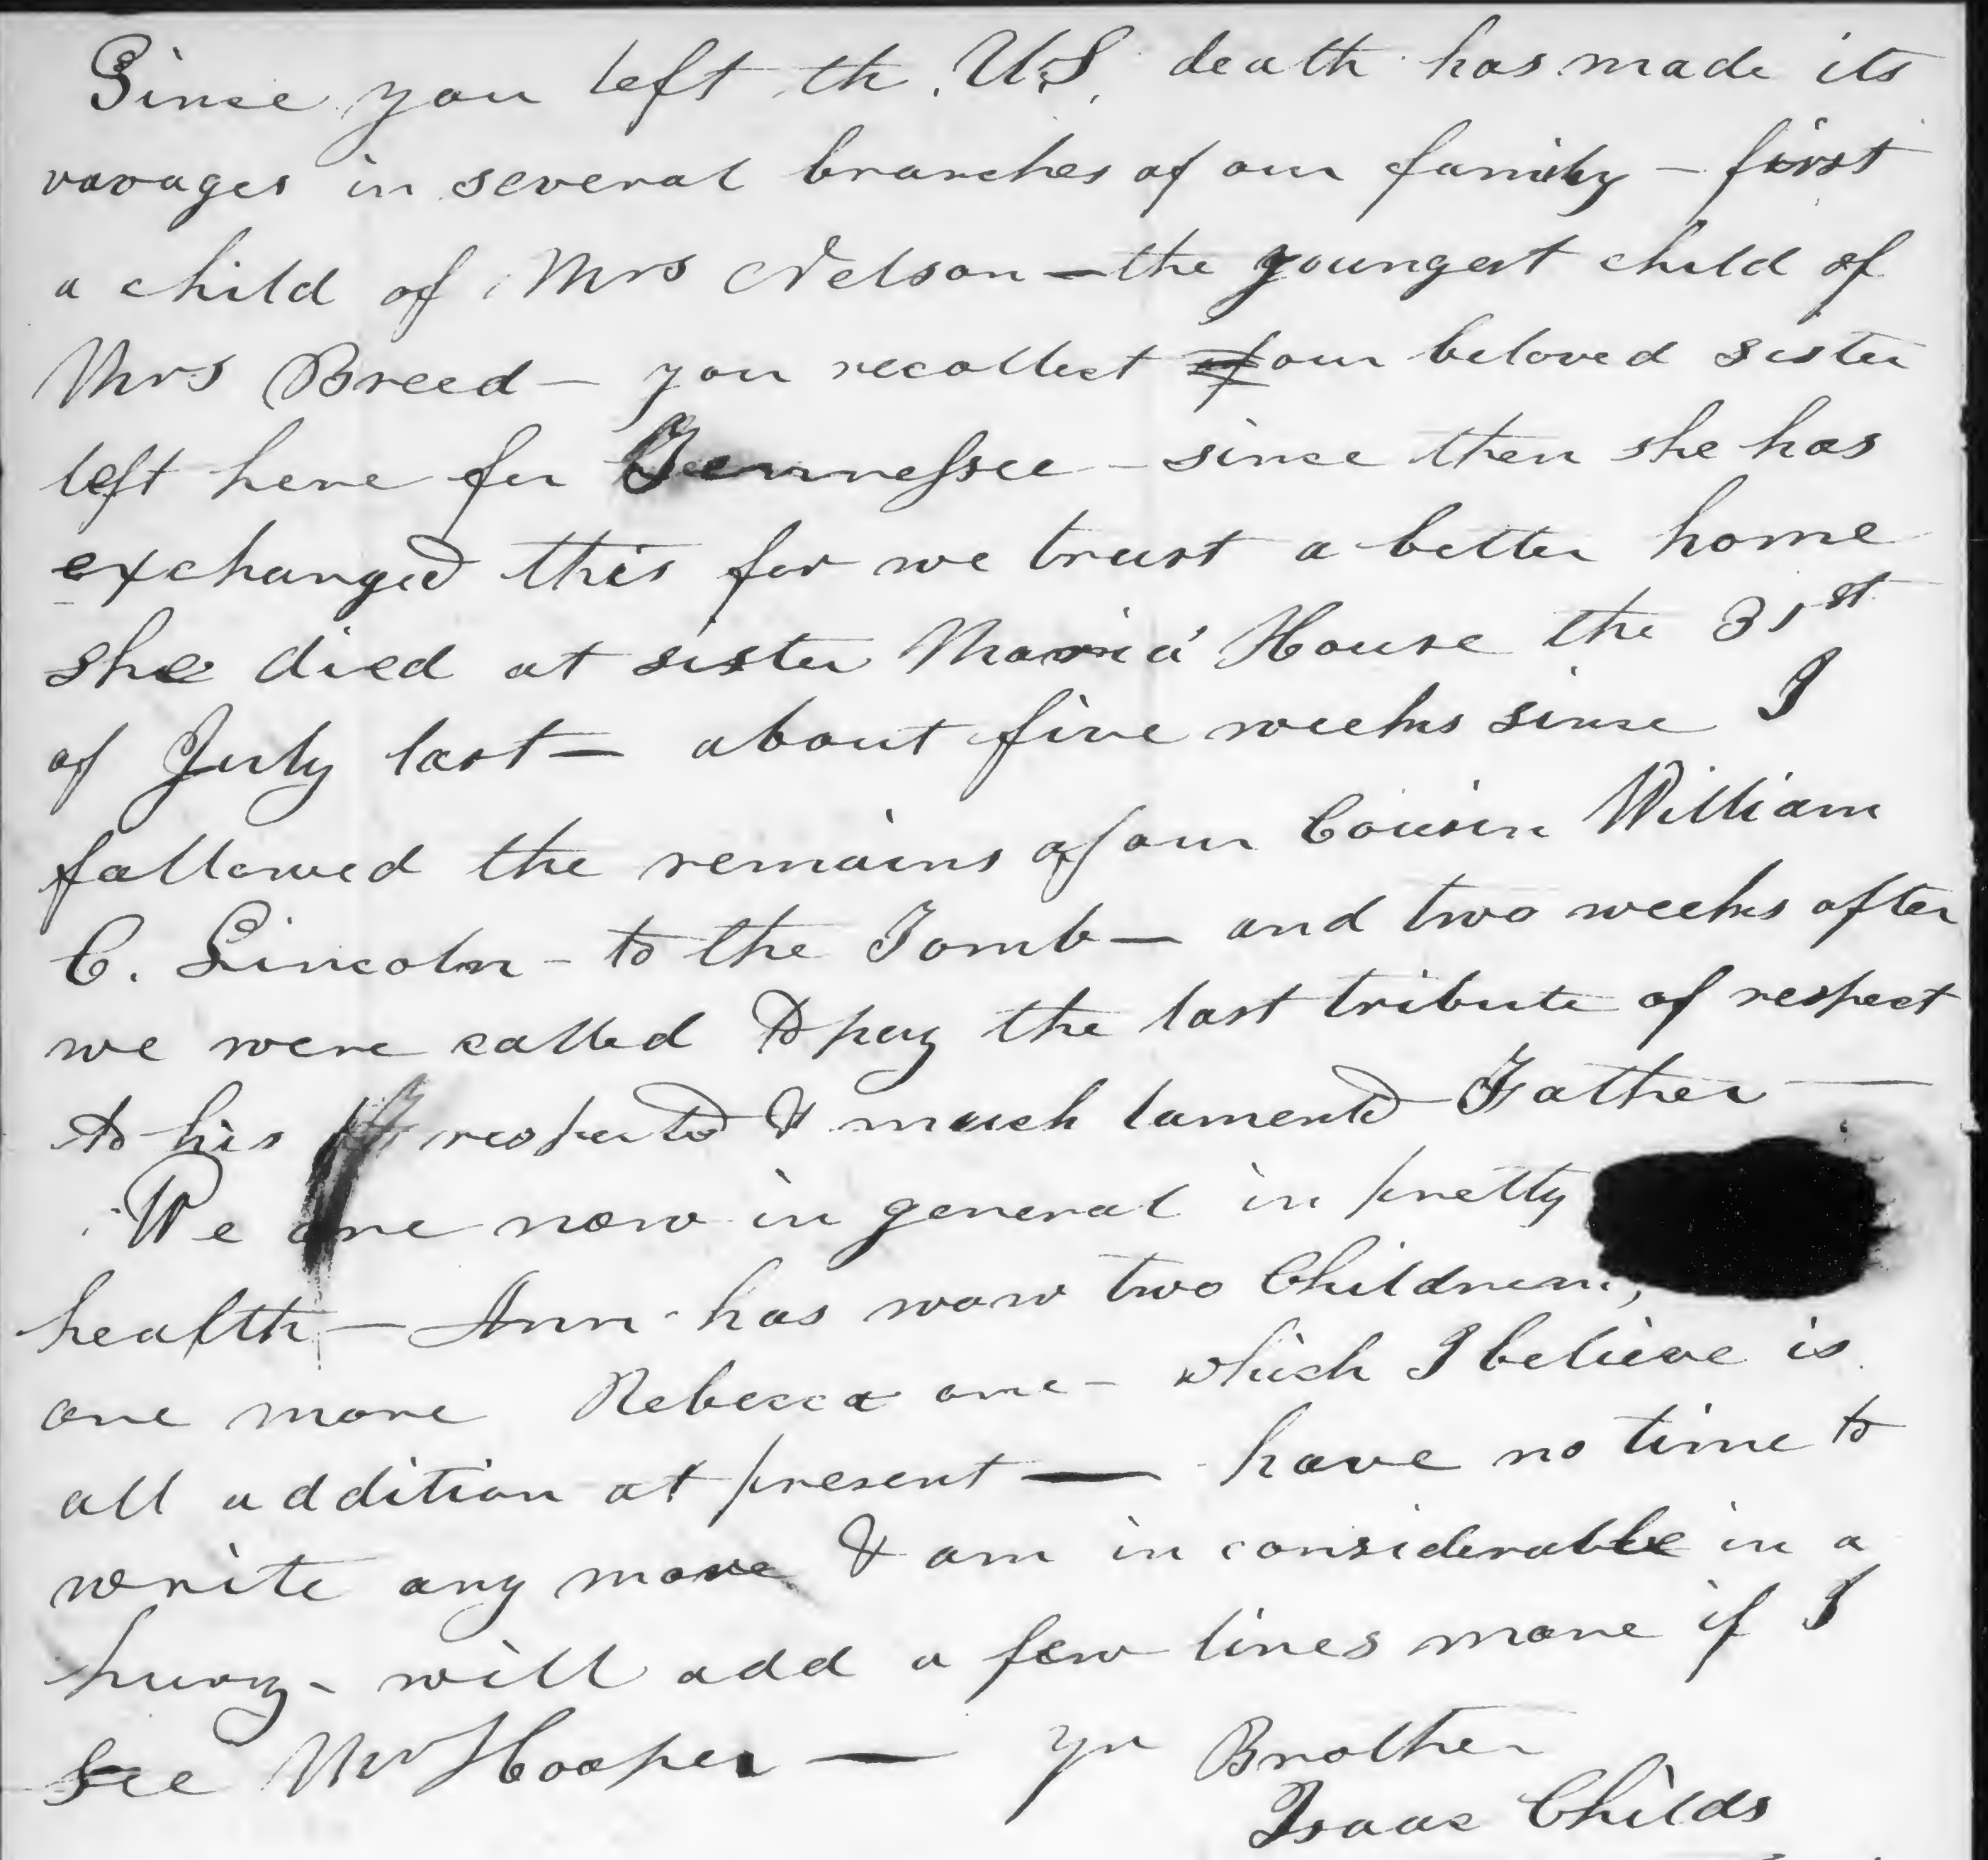 Since you left th. U.S. death has made its
ravages in several branches of our family – first
a child of Mrs Nelson – the youngest child of
Mrs Breed – you recollect of our beloved sister
left here for Tennessee – since then she has
exchanged this for we trust a better home
she died at sister Maria' House the 31st
of July last – about five weeks since I
followed the remains of our Cousin William
C. Lincoln – to the Tomb – and two weeks after
we were called to pay the last tribute of respect
to his respected & much lamented Father —
We are now in general in pretty
health – Ann has now two Children,
one more Rebecca one – which I believe is
all addition at present — have no time to
write any more & am in considerable in a
hurry – will add a few lines more if I
see Mr Hooper — yr Brother
Isaac Childs